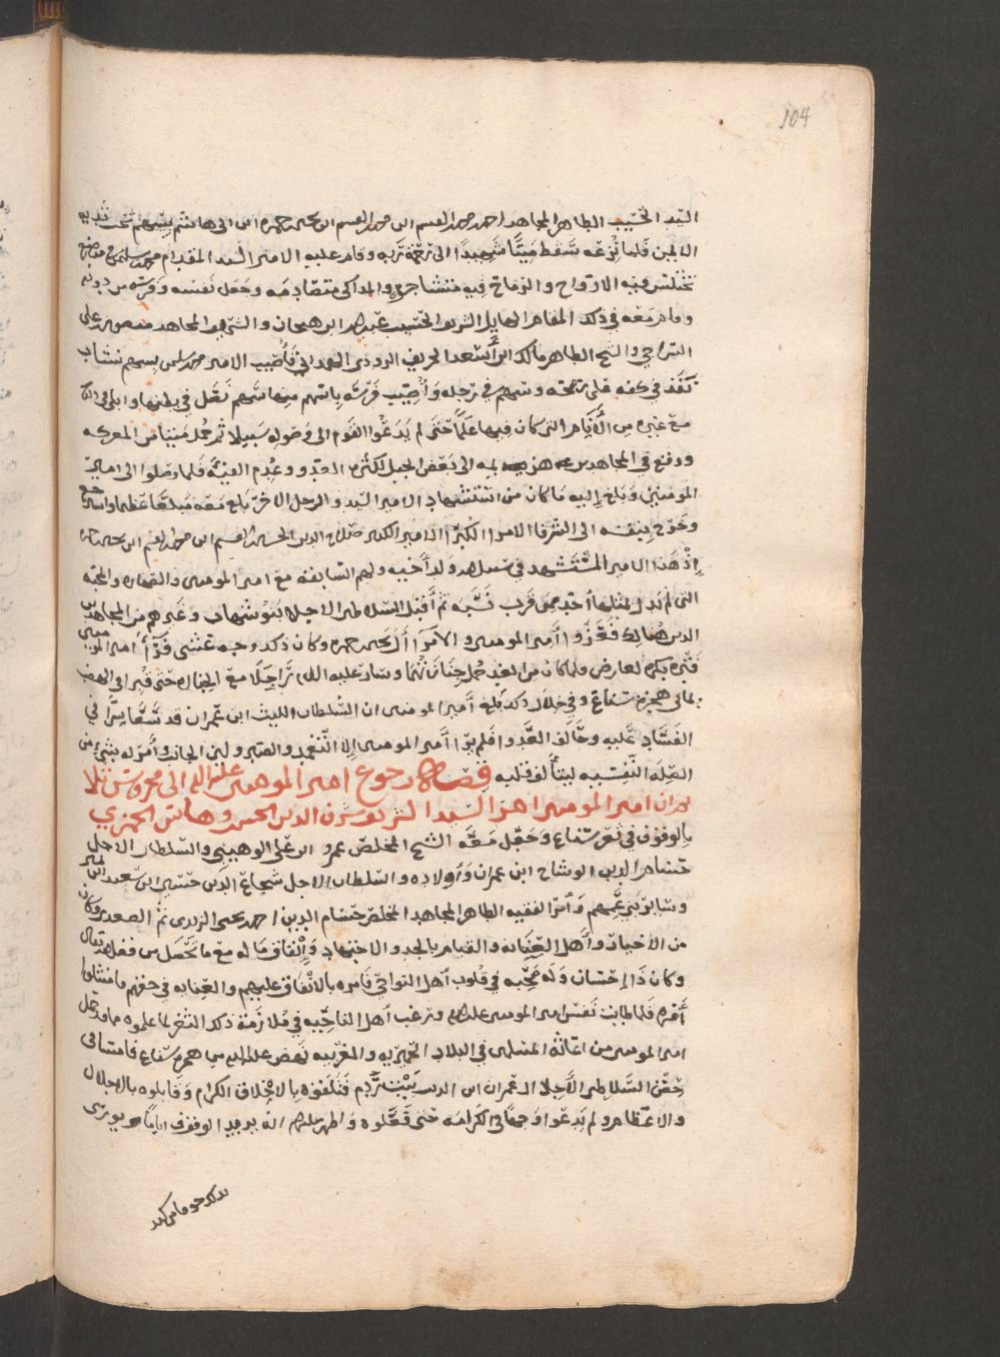 104
السيد الحسيب الطاهر المجاهد احمد محمد القسم ابن محمد القسم ابن يحيى حمزه ابن ابي هاشم بسهم تحت ثديه
الايمن فلما نزعه سقط ميتا شهيدا الى رحمة ربه وقام عليه الامير السيد المقدام محمد سليمن في موضع
تختلس فيه الارواح والرماح فيه متشاجره والمذاكي متصادمه وجعل نفسه وفرسه من دونه
وقام معه في ذلك المقام الهايل الشريف الحسيب عبدالله ابن هيجان والشريف المجاهد منصور علي
السراجي والشيخ الطاهر مالك ابن أسعد الحريف فأصيب الامير محمد سليمن بسهم نشاب
نفذ في كفه على رمحه وسهم في رجله وأصيب فرسه باسهم منها سهم نصل في بطنها وابلى في ذلك
مع غيره من الأكابر التي كان فيها علما حتى لم يدعوا القوم الى وصوله سبيلا ثم حمل ميتا من المعركه
ووقع في المجاهدين هزيمه الى بعض الجبل لكثره العدو وعدم الفئه فلما وصلوا الى امير
المومنين وبلغ إليه ما كان من استشهاد الامير السيد والرجل الاخر بلغ معه مبلغا عظيما واسترجع
وخرج بنفسه الى الشرفا الامرا الكبرا الامير الكبير صلاح الدين الحسن القسم ابن محمد القسم ابن يحيى حمزه
إذ هذا الامير المستشهد في سبيل الله ولد أخيه ولهم السابقه مع امير المومنين والصهاره والمحبه
التي لم يدل لمثلها أحد ممن قرب نسبه ثم أقبل السلاطين الاجلا بنو شهاب وغيرهم من المجاهدين
الذين هنالك فعزوا أمير المومنين والأمرا أل يحيى حمزه وكان ذلك وجه عشي فرأى امير المومنين
قبره بكره لعارض ولما كان من الغد حمل جنازتهما وسار عليه السلام راجلا مع الجنازه حتى قبر في الهضب
يماني هجرة سناع وفي خلال ذلك بلغ أمير المومنين ان السلطان الليث ابن عمران قد سعا سرا في
الفساد عليه وخالف العدو فلم ير أمير المومنين إلا التغمد والصبر ولين الجانب وأمر له بشيء من
الصله النفسيه ليتألف قلبه قصة رجوع امير المومنين عليه السلام الى محروس ثلا
ثم ان امير المومنين امر السيد الشريف شرف الدين الحسن وهاس الحمزي
بالوقوف في ثغر سناع وجعل معه الشيخ المخلص عمرو ابن علي الوهيبي والسلطان الاجل
حسام الدين الوشاح ابن عمران وأولاده والسلطان الاجل شجاع الدين حسين ابن سعيد
وسائر بني عمهم وأمر الفقيه الطاهر المجاهد المخلص حسام الدين احمد يحيى الزيدي ثم الصعدي وكان
من الأخيار وأهل العنايه والقيام بالجد والاجتهاد وإنفاق ماله مع ما تحصل من فضل الله تعالى
وكان ذا إحسان وله محبه في قلوب أهل النواحي فامره بالانفاق عليهم والعنايه في حقهم فامتثلوا
أمره فلما طابت نفس امير المومنين عليه السلام ورغب أهل الناحيه في ملازمة ذلك الثغر لما علموه مما قد حل
امير المومنين من اغاثة المسلمين في البلاد الحميريه والمغربيه نهض عليه السلام من هجرة سناع فامسا في
حصن السلاطين الأجلا ال عمران ابن الذيب بيت ردم فتلقوه بالاخلاق الكرام وقابلوه بالاجلال
والاعظام ولم يدعوا وجها في الكرامه حتى فعلوه واظهر عليه السلام انه يريد الوقوف اياما وهو يوري